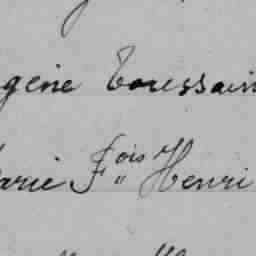 gène Toussain
arie F^ois Henri